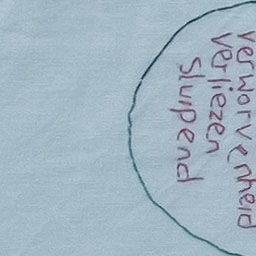 verworvenheid
verliezen
sluipend